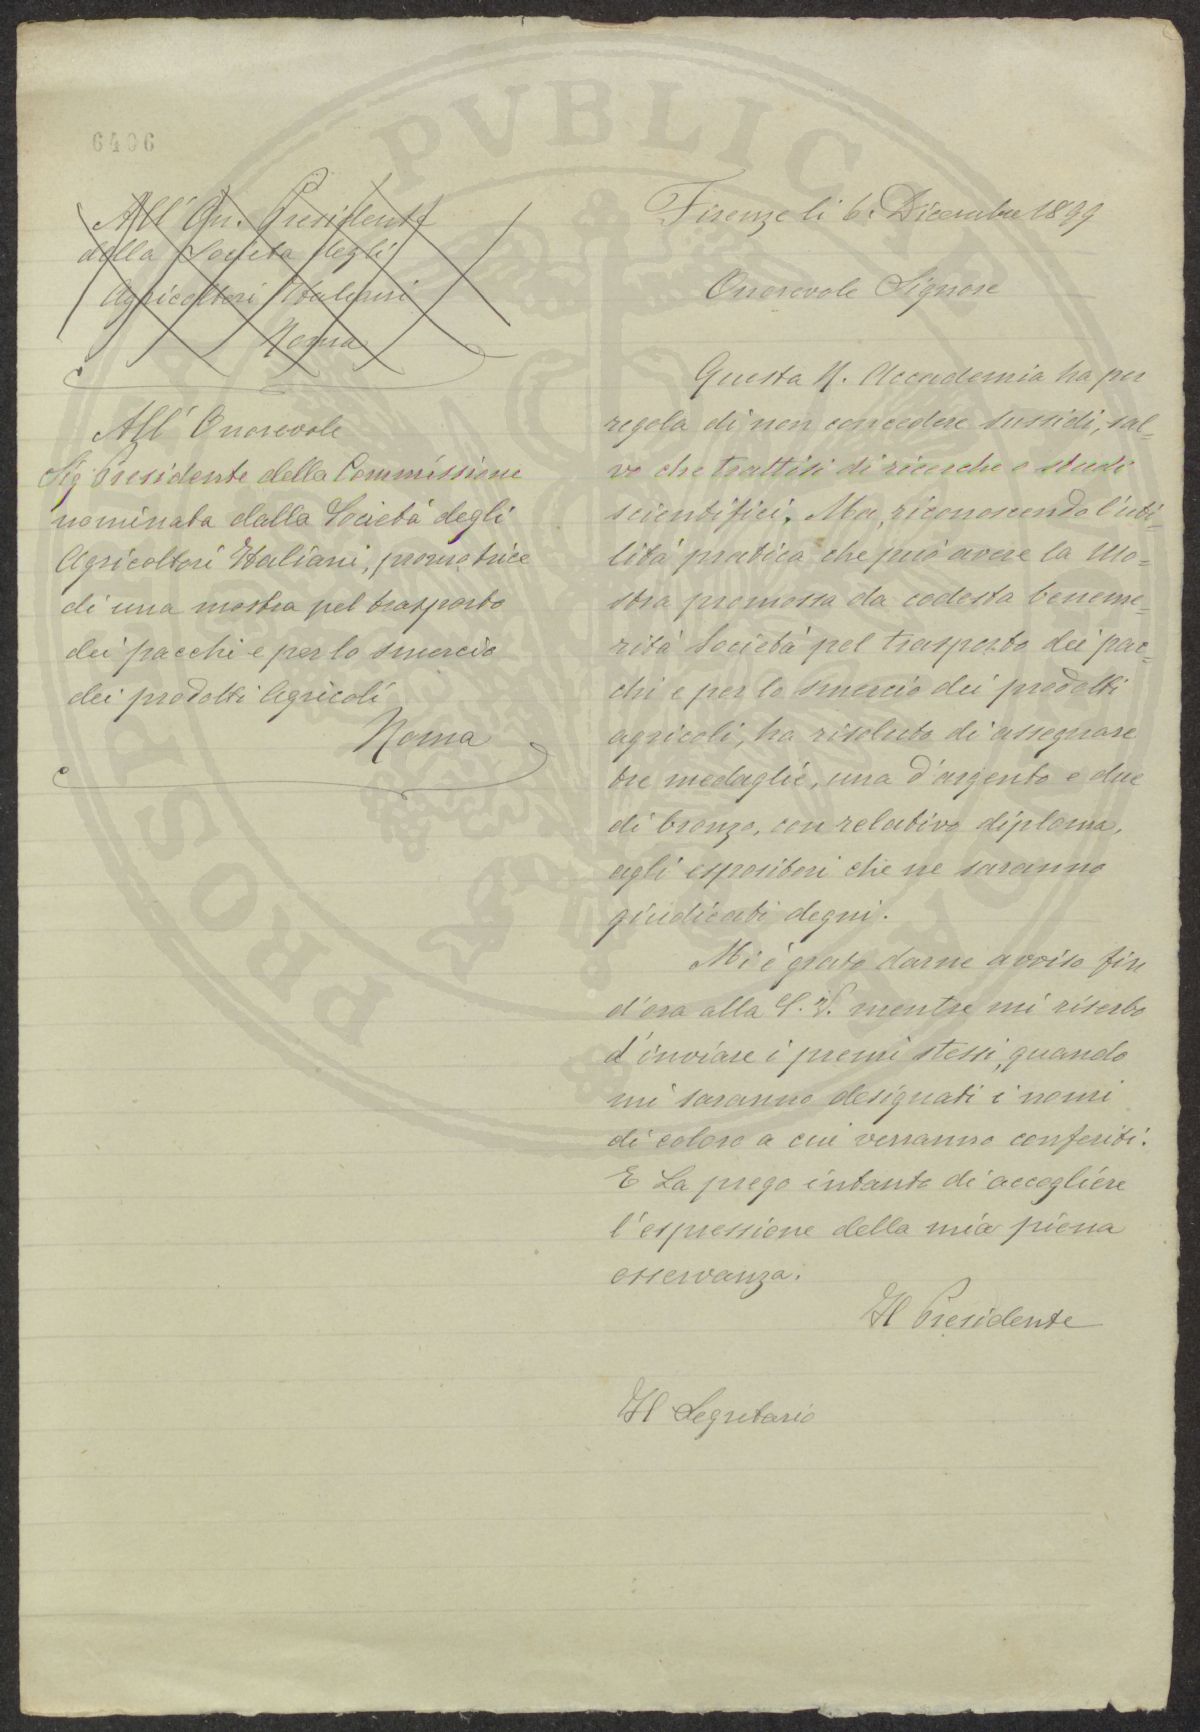 6406
All' On. Presidente
della Società degli
Agricoltori Italiani
Roma
All' Onorevole
Sig. Presidente della Commissione
nominata dalla Società degli
Agricoltori Italiani, promotrice
di una mostra pel trasporto
dei pacchi e per lo smercio
dei prodotti Agricoli
Roma
Firenze li 6. Dicembre 1899
Onorevole Signore
Questa R. Accademia ha per
regola di non concedere sussidi, sal=
vo che trattisi di ricerche o studi
scientifici. Ma, riconoscendo l'uti=
lità pratica che può avere la Mo=
stra promossa da codesta beneme=
rità Società pel trasporto dei pac=
chi e per lo smercio dei prodotti
agricoli, ha risoluto di assegnare
tre medaglie, una d'argento e due
di bronzo, con relativo diploma,
agli espositori che ne saranno
giudicati degni.
Mi è grato darne avviso fin
d'ora alla S. V. mentre mi riserbo
d'inviare i premi stessi, quando
mi saranno designati i nomi
di coloro a cui verranno conferiti.
E La prego intanto di accogliere
l'espressione della mia piena
osservanza.
Il Presidente
Il Segretario